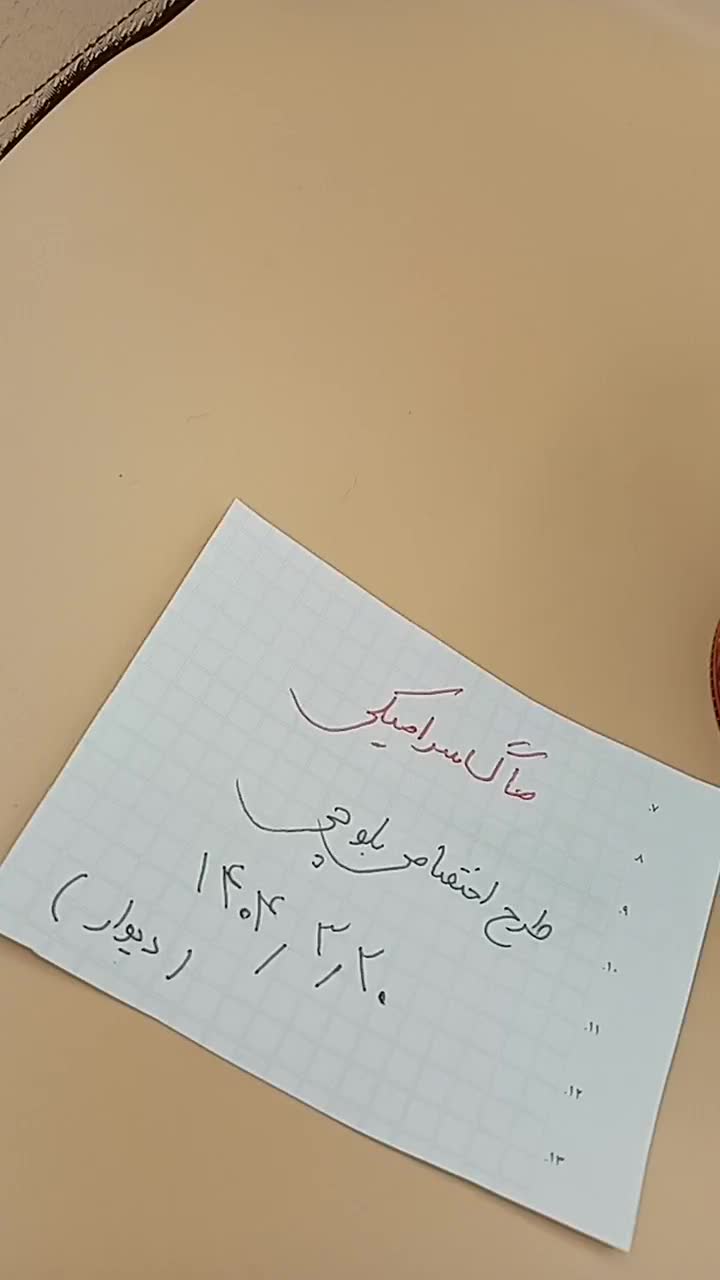 طرح اختصاصی بلوچی
۱۴۰۴/۳/۲۰
(دیوار)
۷.
۸
۹.
۱۰.
۱۱.
۱۲.
۱۳.